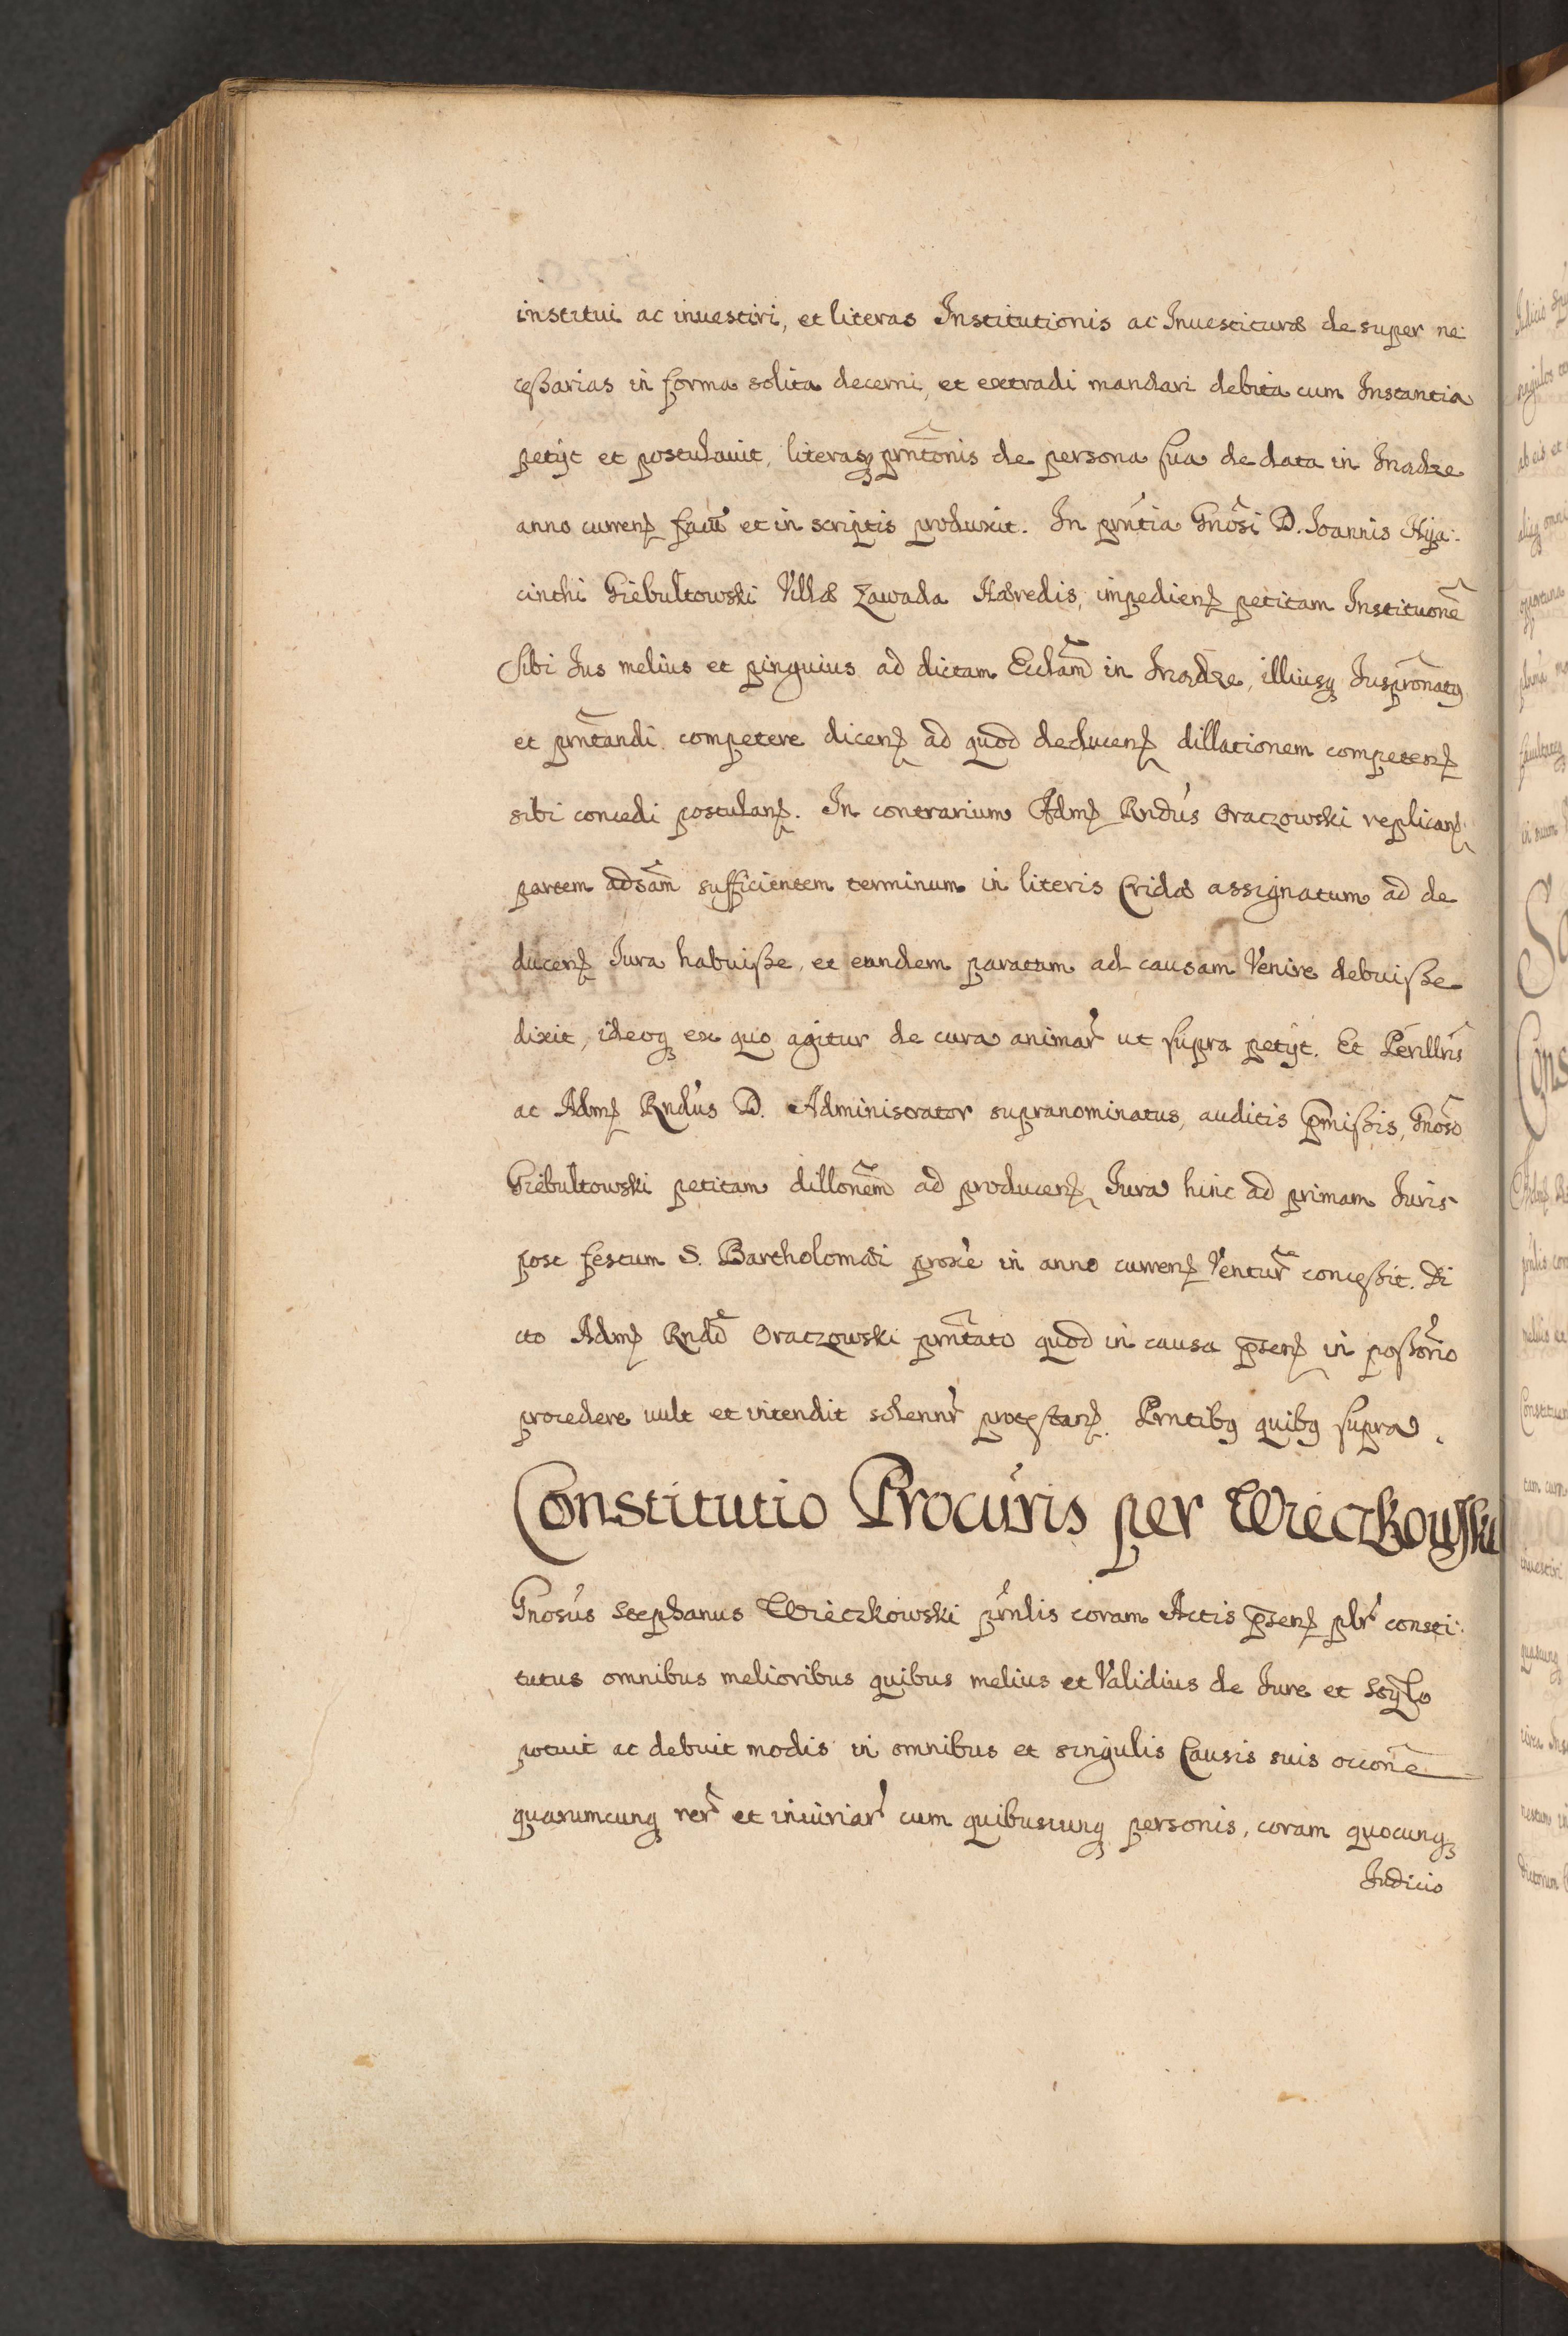 institui ac inuestiri, et literas Institutionis ac Inuestituræ de super ne:
ceßarias in forma solita decerni, et extradi mandari debita cum Instantia
petÿt et postulauit, literasq prntõnis de persona sua de data in
anno curren et in scriptis produxit. In prntia Gnosi D. Joannis Hÿa:
cinthi Giebułtowski Villæ Zawada Hæredis, impedien petitam Instituonẽ
Sibi Jus melius et pinguius ad dictam Ecclãm in illiusq Juspronatq
et prntandi competere dicen ad quod deducen dillationem competen
sibi concedi postulan. In contrarium Adm Rndus Oraczowski replican
partem adsãm sufficientem terminum in literis Cridæ assignatum ad de
ducen Jura habuiße, et eandem paratam ad causam Venire debuiße
dixit, ideoq ex quo agitur de cura animar ut supra petÿt. Et Perillris
ac Adm Rndus D. Administrator supranominatus, auditis pmißis, Gnoso
Giebułtowski petitam dillonẽm ad producen Jura hinc ad primam Juris
post festum S. Bartholomæi proxe in anno curren Ventur conceßit. Di
cto Adm Rndo Oraczowski prntato quod in causa psen in poßorio
procedere uult et intendit solennr protestan. Prntibq quibq supra.
Constitutio Procuris per Wieczkowski
Gnosus Stephanus Wieczkowski prnlis coram Actis psen plr consti:
tutus omnibus melioribus quibus melius et Validius de Jure et Stÿlo
potuit ac debuit modis in omnibus et singulis Causis suis occonẽ
quarumcunq rer et iniuriar cum quibuscunq personis, coram quocunq
Judicio